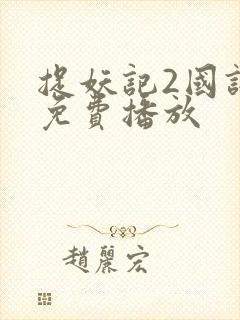 捉妖記2國語
免費播放
趙麗宏